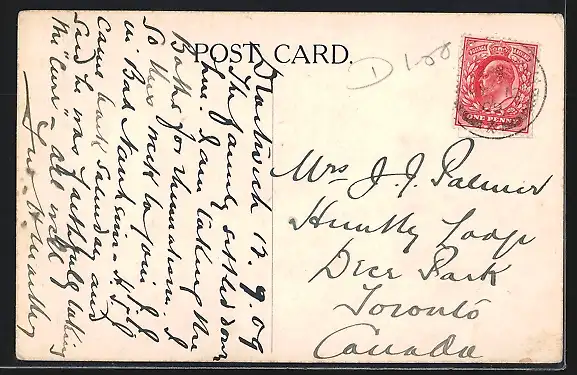 POST CARD.
D 1-00
ONE PENNY
Droitwich 17.9.09
The family settled down
here. I am taking the
Baths for rheumatism. I
go this week to join J.J.
in Bad Nauheim - 
came back Saturday and
said he was faithfully taking
the "cure" - all well
Mrs J. J. Palmer
Huntly Lodge
Deer Park
Toronto
Canada